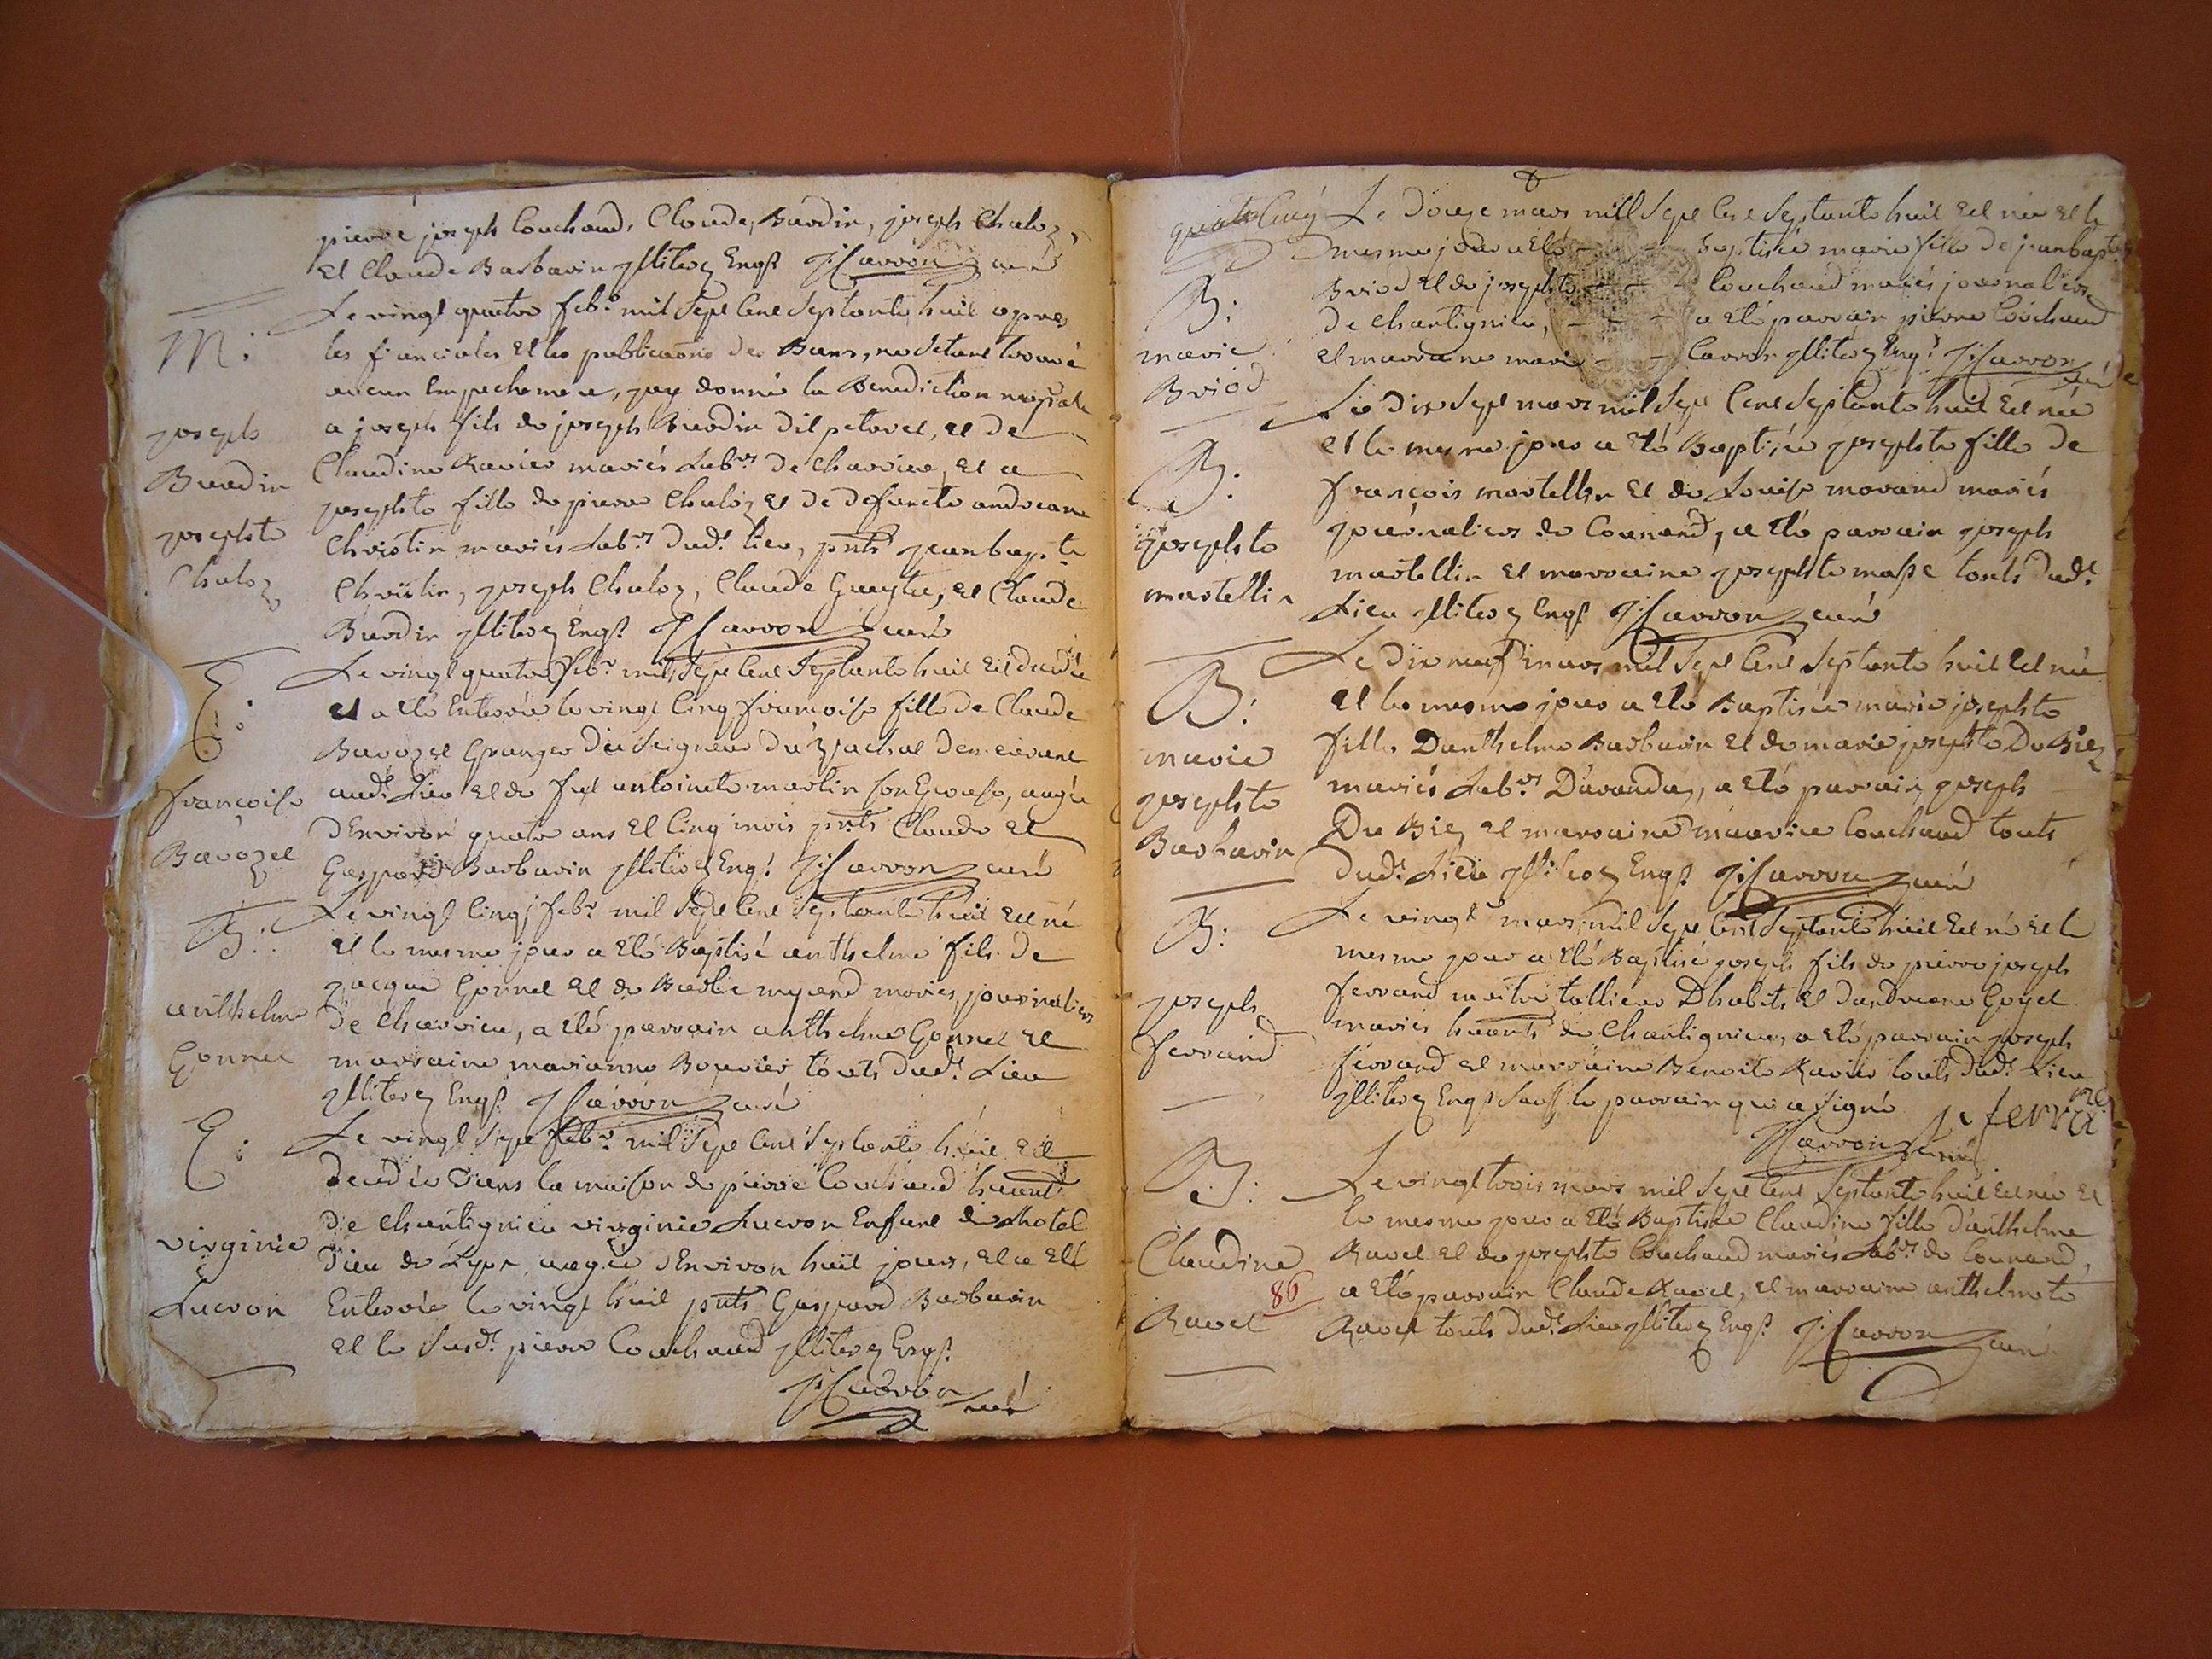 pierre joseph Couchaud, Claude Burdin, joseph Chaloz,
et Claude Barbarin jllitez Enqs Carron curé
M:
joseph
Burdin
josephte
Chaloz
Le vingt quatre febr. mil sept cent septante huit apres
les fiancailes et les publications des Bans, ne setant trouvé
aucun Empechement, jay donné la Benediction nuptiale
a joseph fils de joseph Burdin dit petoret, et de
Claudine Ravier mariés Labrs de charvieu, et a
josephte fille de pierre Chaloz et de defuncte andreane
Christin mariés Labrs dudt lieu, pnts jeanbapte
Christin, joseph Chaloz, Claude et Claude
Burdin jllitez Enqs Carron curé
E:
françoise
Bavozet
Le vingt quatre febr. mil sept cent septante huit est decedée
et a eté Enterrée le vingt cinq françoise fille de Claude
Bavozet Granger du seigneur du demeurant
audt Lieu et de fut antoinete martin son Epouse, aagée
dEnviron quatre ans et cinq mois pnts Claude et
Gaspard Barbarin jllitez Enqs Carron curé
B:
anthelme
Gonnet
Le vingt cinq febr. mil sept cent septante huit est né
et le mesme jour a eté Baptisé anthelme fils de
jacque Gonnet et de mariés journaliers
de charvieu, a eté parrain anthelme Gonnet et
marraine marianne Bouvier touts dudt Lieu
jllitez Enqs Carron curé
E:
virginie
Lucron
Le vingt sept febr. mil sept cent septante huit est
decedée dans la maison de pierre Couchaud
de chantignieu virginie Lucron Enfant de lhotel
Dieu de Lyon aagée dEnviron huit jours, et a eté
Enterrée le vingt huit pnts Gaspard Barbarin
et le susdt pierre Couchaud jllitez Enqs
Carron curé
quatre Cinq
B:
marie
Briod
Le douze mars mill sept cent septante huit est née et le
mesme jour a eté Baptisée marie fille de jeanbapte
Briod et de josephte Couchaud mariés journaliers
de chantignieu, a eté parrain pierre Couchaud
et marraine marie Carron jllitez Enqs Carron curé
B:
josephte
martellin
Le dix sept mars mil sept cent septante huit est née
et le mesme jour a eté Baptisée josephte fille de
françois martellin et de Louise morand mariés
journaliers de Connand, a eté parrain joseph
martellin et marraine josephte masse touts dudt
Lieu jllitez Enqs Carron curé
B:
marie
josephte
Barbarin
Le dix neuf mars mil sept cent septante huit est née
et le mesme jour a eté Baptisée marie josephte
fille Danthelme Barbarin et de marie josephte Du Biez
mariés Labrs Davanda, a eté parrain joseph
Du Biez et marraine Couchaud touts
dudt Lieu jllitez Enqs Carron curé
B:
joseph
ferrand
Le vingt mars mil sept cent septante huit est né et le
mesme jour a eté Baptisé joseph fils de pierre joseph
ferrand maitre tallieur Dhabits et dandreane Goyet
mariés de Chantignieu, a eté parrain joseph
ferrand et marraine Benoite Ravier touts dudt Lieu
jllitez Enqs sauf le parrain qui a signé j. ferra
Carron curé
B:
Claudine
Ravet
86
Le vingt trois mars mil sept cent septante huit est née et
le mesme jour a eté Baptisée Claudine fille danthelme
Ravet et de josephte Couchaud mariés Labrs de Connand,
a eté parrain Claude Ravet, et marraine anthelmete
Ravet touts dudt Lieu jllitez Enqs Carron curé